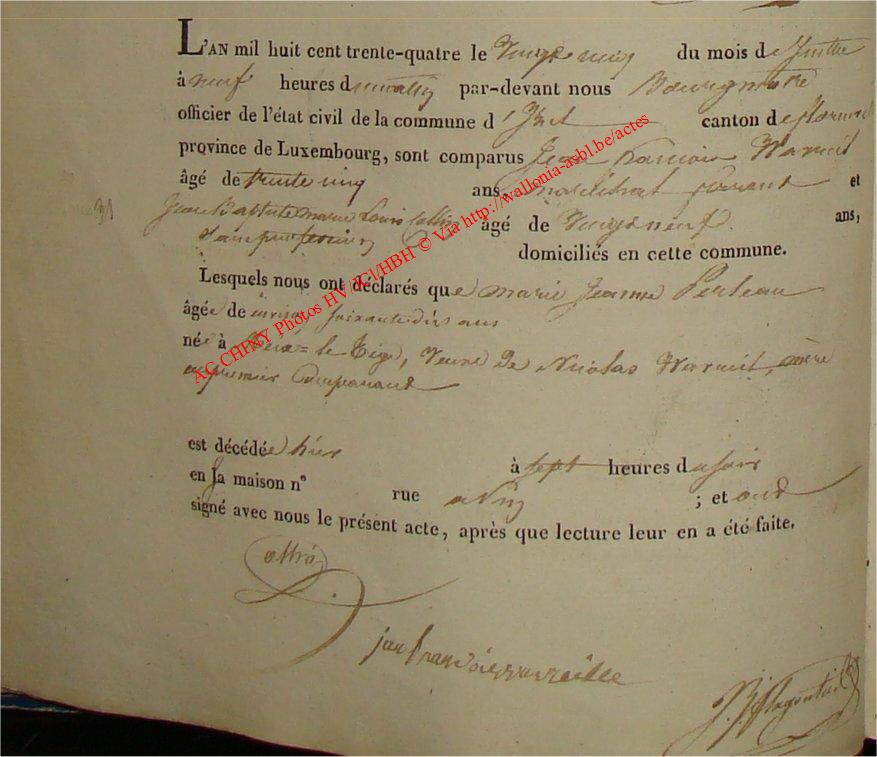 L'AN mil huit cent trente-quatre le Vingt neuf du mois de
à neuf heures du matin par-devant nous Bourgmestre
officier de l'état civil de la commune d' canton de
province de Luxembourg, sont comparus Jean François Warnit
âgé de trente cinq ans, maréchal ferrant et
31 Jean Baptiste marie Louis âgé de Vingt neuf ans,
sans profession domiciliés en cette commune.
Lesquels nous ont déclarés que marie Jeanne Perleau
âgée de environ soixante dix ans
née à le Tige, Veuve de Nicolas Warnit, mère
au premier Comparant
est décédée hier à sept heures du soir
en sa maison n°
rue ; et ont
signé avec nous le présent acte, après que lecture leur en a été faite.
jean francois
AC CHINY Photos HV JCI/HBH © Via http://wallonia-asbl.be/actes